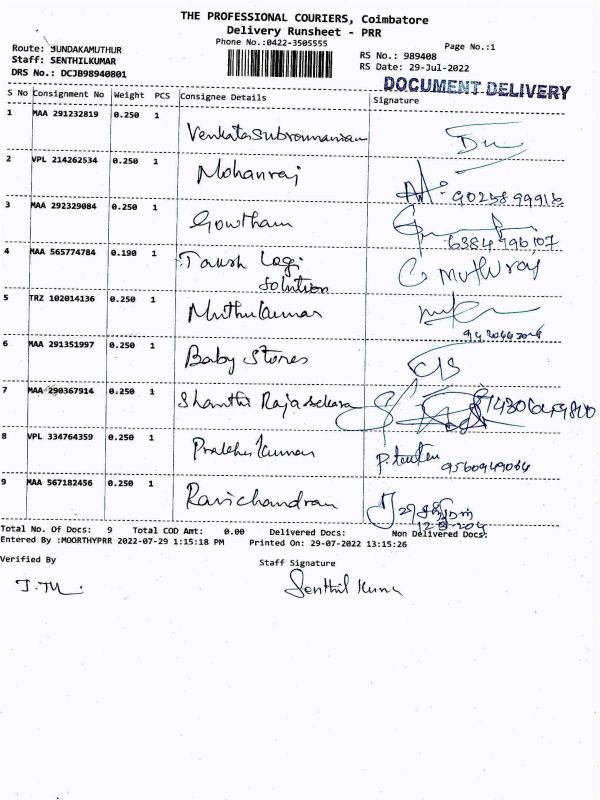 THE PROFESSIONAL COURIERS, Coimbatore
Delivery Runsheet - PRR
Phone No.:0422-3505555
Page No.:1
Route: SUNDAKAMUTHUR
Staff: SENTHILKUMAR
DRS No.: DCJB98940801
RS No.: 989408
RS Date: 29-Jul-2022
DOCUMENT DELIVERY
S No Consignment No Weight PCS Consignee Details Signature
1 MAA 291232819 0.250 1 Venkatasubramanian
2 VPL 214262534 0.250 1 Mohanraj
3 MAA 292329084 0.250 1 Gowtham
6384996107
4 MAA 565774784 0.190 1 Taush Logi
Solution
C Muthuraj
5 TRZ 102014136 0.250 1 Muthukumar
6 MAA 291351997 0.250 1 Baby Stores
7 MAA 290367914 0.250 1 Shanthi Rajasekara
8 VPL 334764359 0.250 1 Prabhu Kumar
9560949064
9 MAA 567182456 0.250 1 Ravichandran
Total No. Of Docs: 9 Total COD Amt: 0.00 Delivered Docs: Non Delivered Docs:
Entered By :MOORTHYPRR 2022-07-29 1:15:18 PM Printed On: 29-07-2022 13:15:26
Verified By
Staff Signature
Senthil Kumar